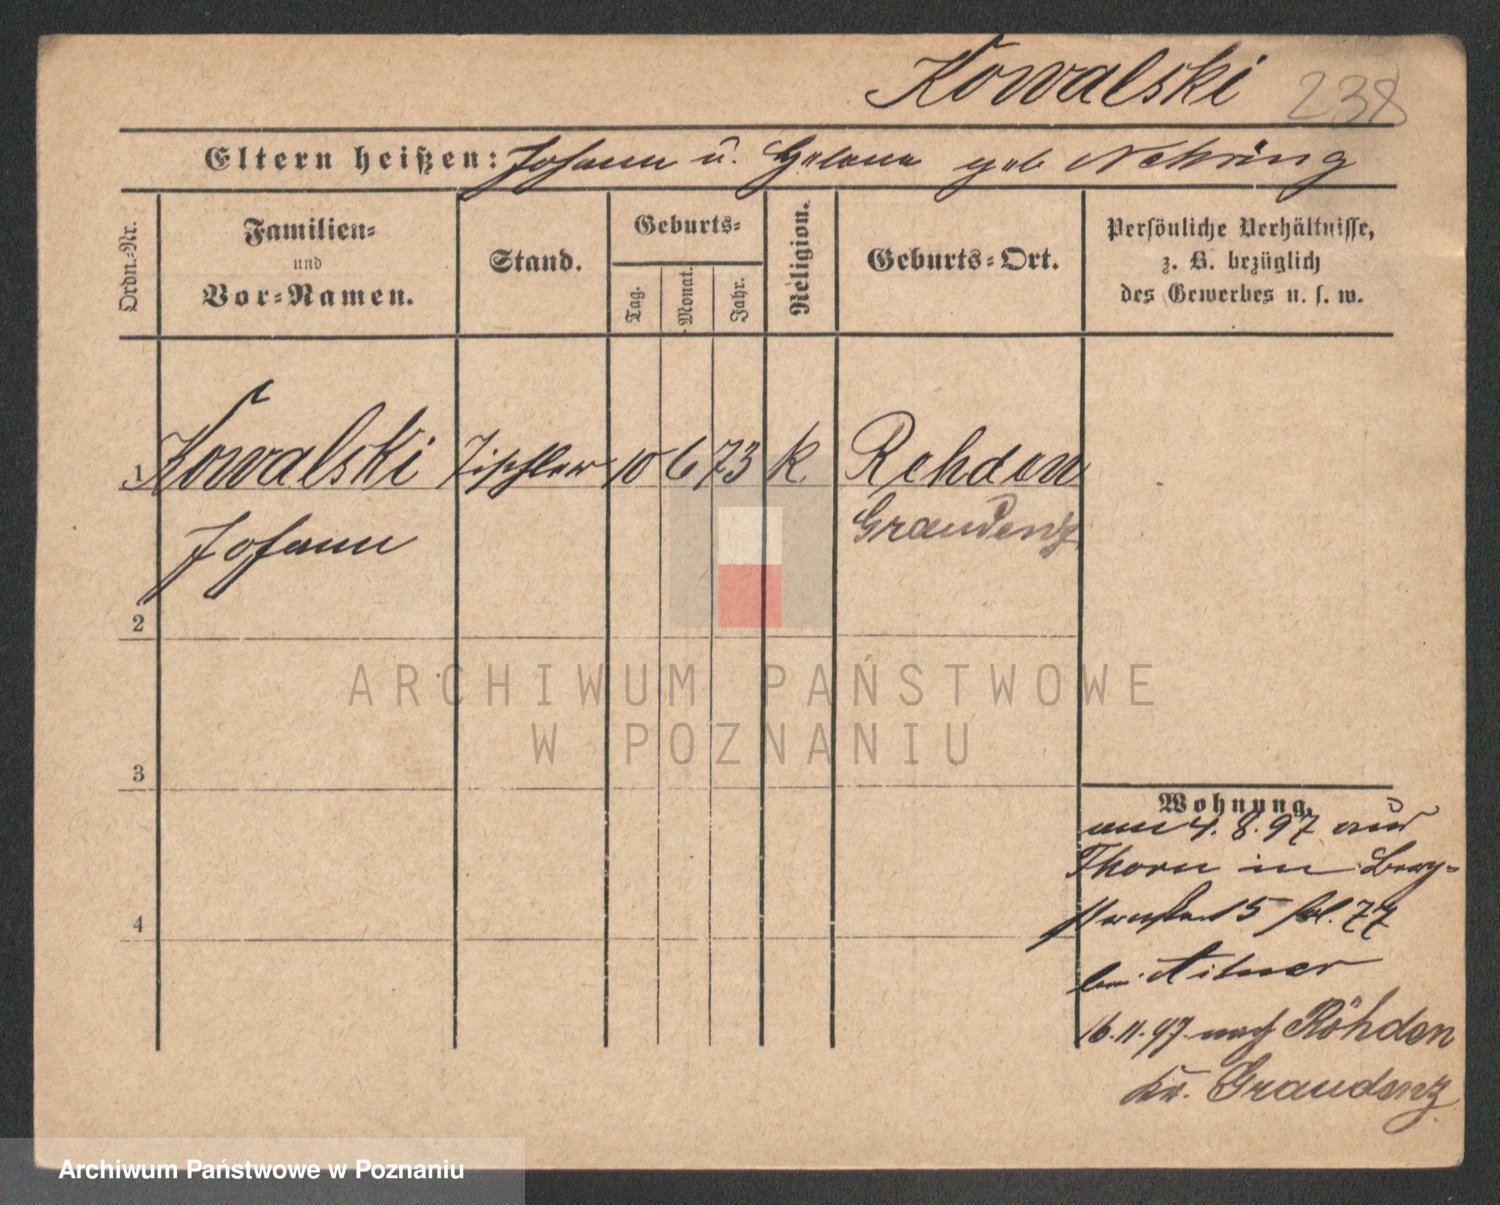 Kowalski 238
Eltern heißen: Johann u. Helene geb Nehring
Ordn.-Nr.
Familien-
und
Vor-Namen.
Stand.
Geburts-
Tag.
Monat.
Jahr.
Religion.
Geburts-Ort.
Persönliche Verhältnisse,
z. B. bezüglich
des Gewerbes u. s. w.
1 Kowalski Tischler 10 6 73 k. Rehden
Johann Graudenz
2
3
4
Wohnung.
am 4. 8. 97 aus
Thorn in Berg-
straße 15
bei
16. 11. 97 nach Röhden
Kr. Graudenz
ARCHIWUM PAŃSTWOWE
W POZNANIU
Archiwum Państwowe w Poznaniu